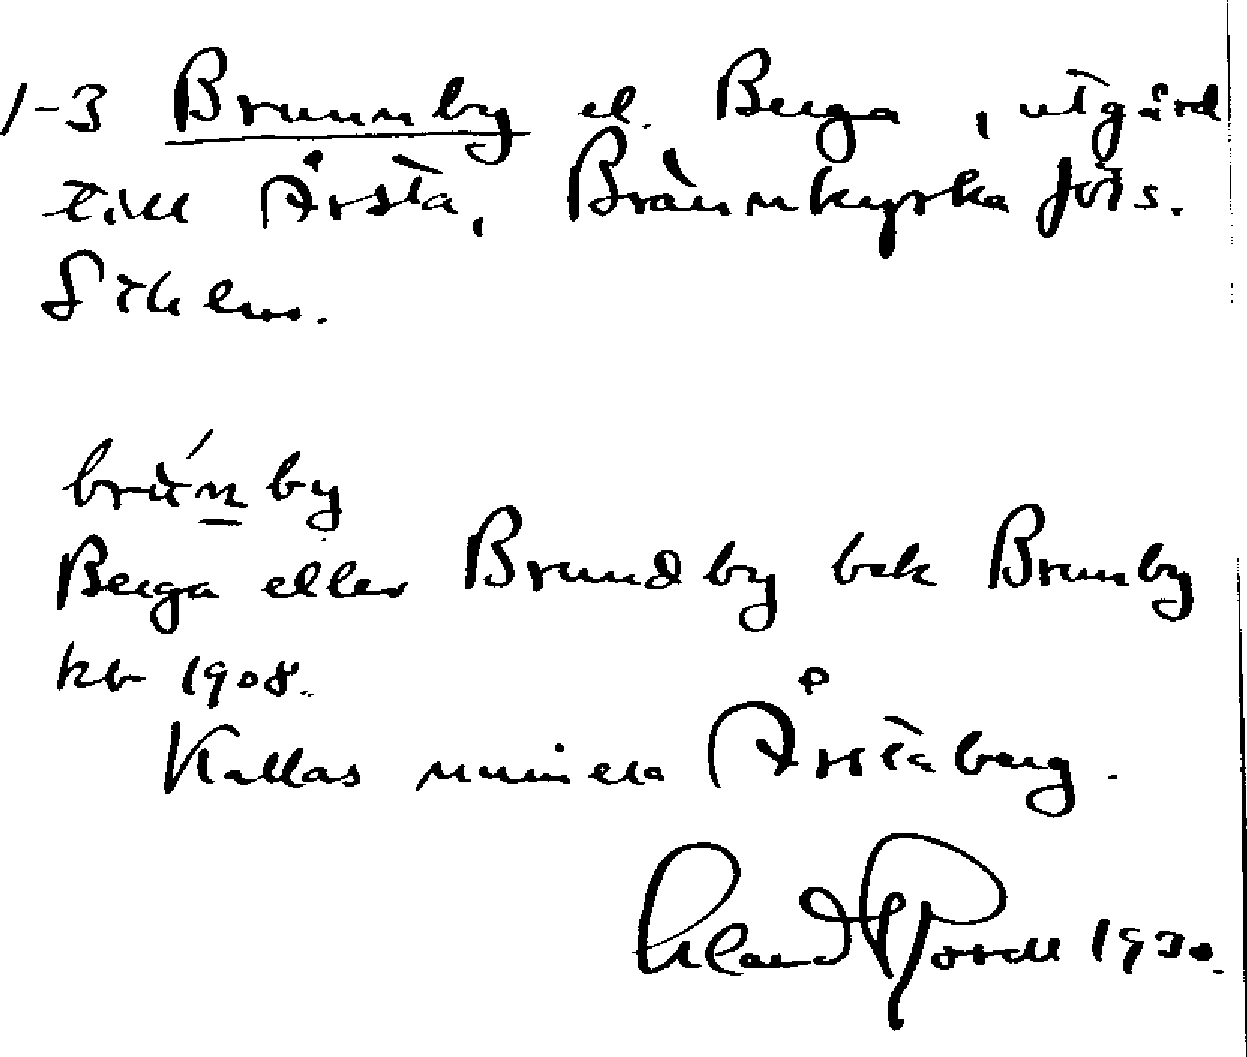 1-3 Brunnby el. Berga, utgård
till Årsta, Brännkyrka förs.
Sthlm.
brún by
Berga eller Brundby bek Brunby
kb 1908.
Kallas numera Årstaberg.
1930.